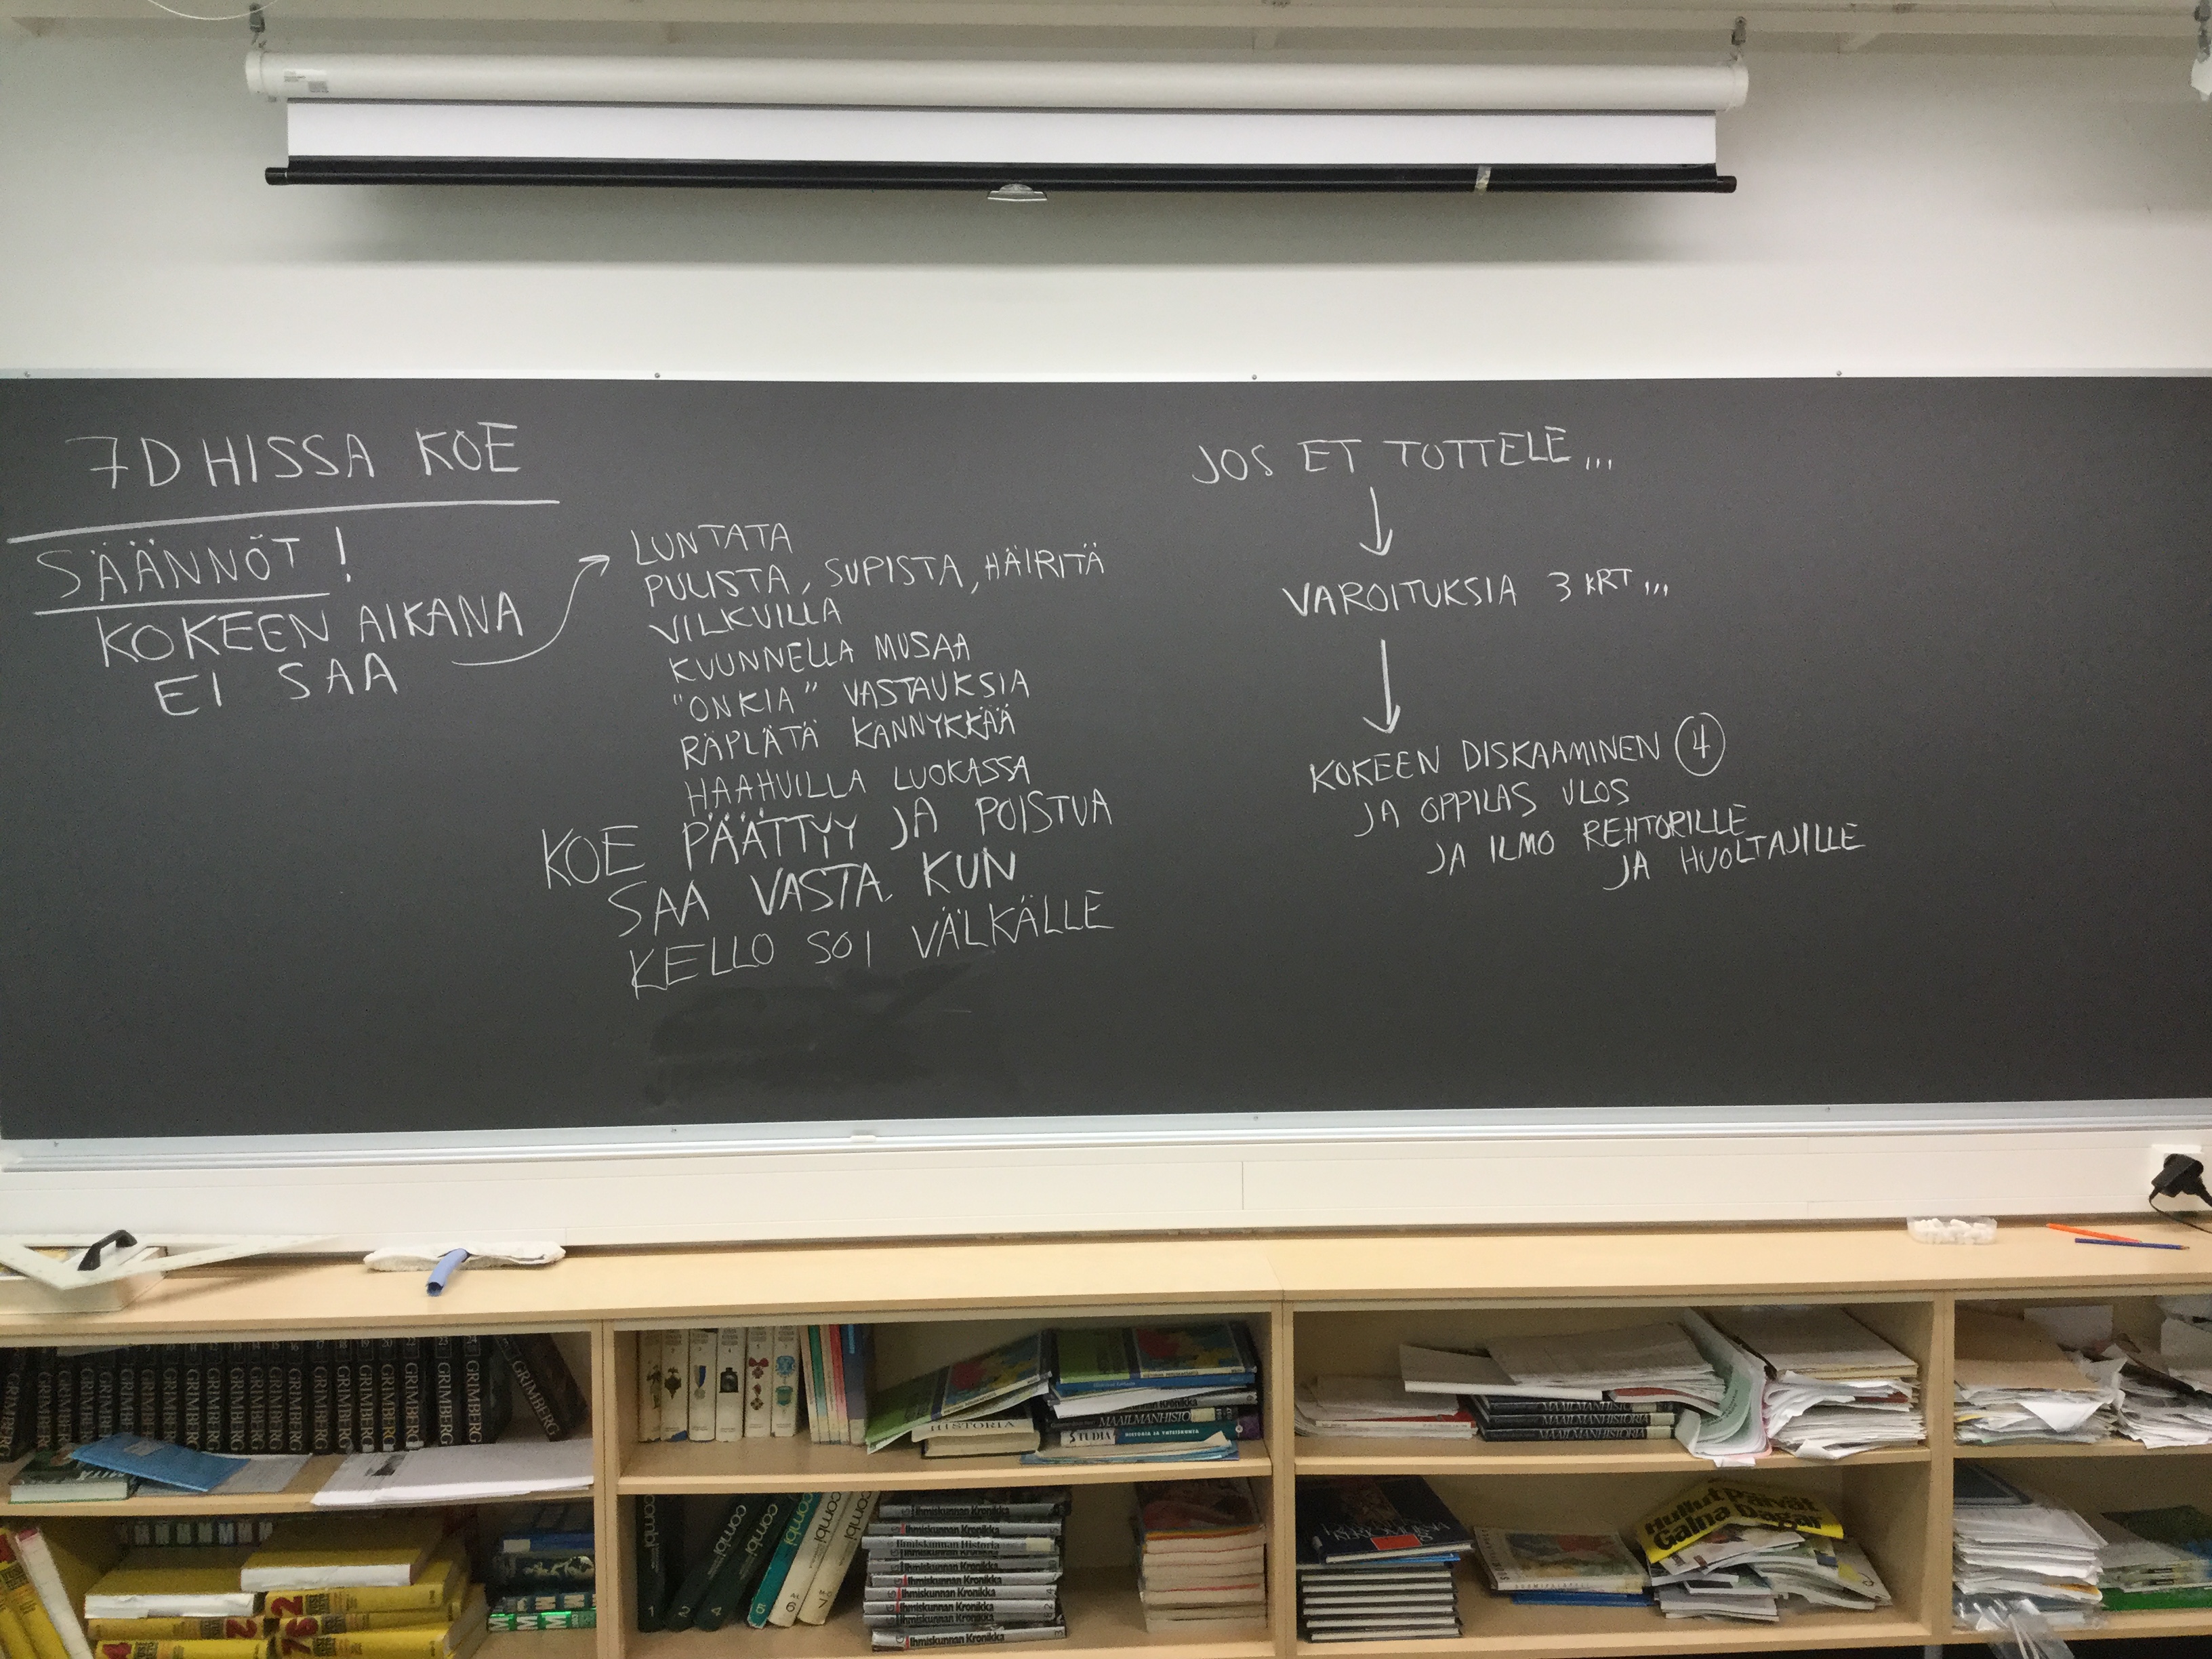 7D HISSA KOE
SÄÄNNÖT!
KOKEEN AIKANA
EI SAA
LUNTATA
PULISTA, SUPISTA, HÄIRITÄ
VILKUILLA
KUUNNELLA MUSAA
"ONKIA" VASTAUKSIA
RÄPLÄTÄ KÄNNYKKÄÄ
HAAHUILLA LUOKASSA
KOE PÄÄTTYY JA POISTUA
SAA VASTA KUN
KELLO SOI VÄLKÄLLE
JOS ET TOTTELE...
VAROITUKSIA 3 KRT...
KOKEEN DISKAAMINEN 4
JA OPPILAS ULOS
JA ILMO REHTORILLE
JA HUOLTAJILLE
GRIMBERG
GRIMBERG
GRIMBERG
GRIMBERG
GRIMBERG
GRIMBERG
GRIMBERG
GRIMBERG
GRIMBERG
GRIMBERG
HISTORIA
Kronikka
MAAILMANHISTO
STUDIA HISTORIA JA YHTEISKUNTA
MAAILMANHISTORIA
MAAILMANHISTORIA
MAAILMANHISTORIA
combi 1
combi 2
combi 4
combi 5
combi
combi
Ihmiskunnan Kronikka
Ihmiskunnan Kronikka
Ihmiskunnan Historia
Ihmiskunnan Kronikka
Ihmiskunnan Kronikka
Ihmiskunnan Kronikka
Ihmiskunnan Kronikka
Ihmiskunnan Kronikka
Ihmiskunnan Kronikka
Hullut Päivät
Galna Dagar